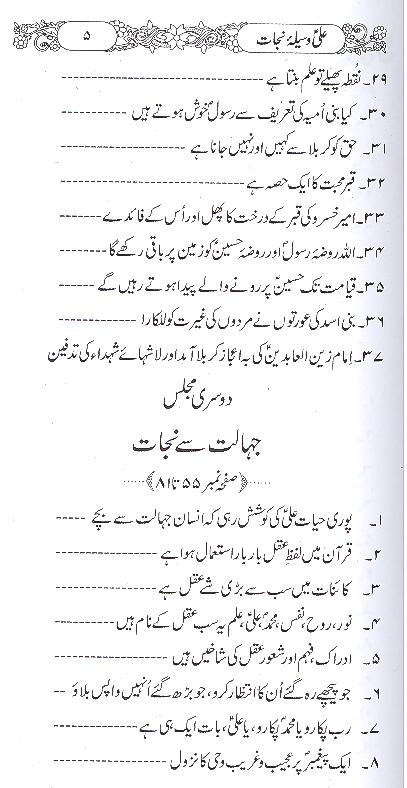 علیؑ وسیلۂ نجات
۵
۲۹۔ نقطہ پھیلے تو علم بنتا ہے ------------------
۳۰۔ کیا بنی اُمیہ کی تعریف سے رسولؐ خوش ہوتے ہیں ----------
۳۱۔ حق کو کربلا سے کہیں اور نہیں جانا ہے ----------------
۳۲۔ قبر محبت کا ایک حصہ ہے --------------------
۳۳۔ امیر خسرو کی قبر کے درخت کا پھل اور اُس کے فائدے --------
۳۴۔ اللہ روضۂ رسولؐ اور روضۂ حسینؑ کو زمین پر باقی رکھے گا -------
۳۵۔ قیامت تک حسینؑ پر رونے والے پیدا ہوتے رہیں گے -------
۳۶۔ بنی اسد کی عورتوں نے مردوں کی غیرت کو للکارا -----------
۳۷۔ اِمام زین العابدینؑ کی بہ اعجاز کربلا آمد اور لاشہائے شہداء کی تدفین
دوسری مجلس
جہالت سے نجات
﴿صفحہ نمبر ۵۵ تا ۸۱﴾
۱۔ پوری حیات علیؑ کی کوشش رہی کہ انسان جہالت سے بچے ------
۲۔ قرآن میں لفظِ عقل بار بار استعمال ہوا ہے -------------
۳۔ کائنات میں سب سے بڑی شے عقل ہے --------------
۴۔ نور، روح، نفس، محمدؐ، علیؑ، علم یہ سب عقل کے نام ہیں --------
۵۔ ادراک، فہم اور شعور عقل کی شاخیں ہیں --------------
۶۔ جو پیچھے رہ گئے اُن کا انتظار کرو، جو بڑھ گئے اُنہیں واپس بلاؤ ----
۷۔ رب پکارو یا محمدؐ پکارو، یا علیؑ، بات ایک ہی ہے -----------
۸۔ ایک پیغمبرؑ پر عجیب و غریب وحی کا نزول --------------